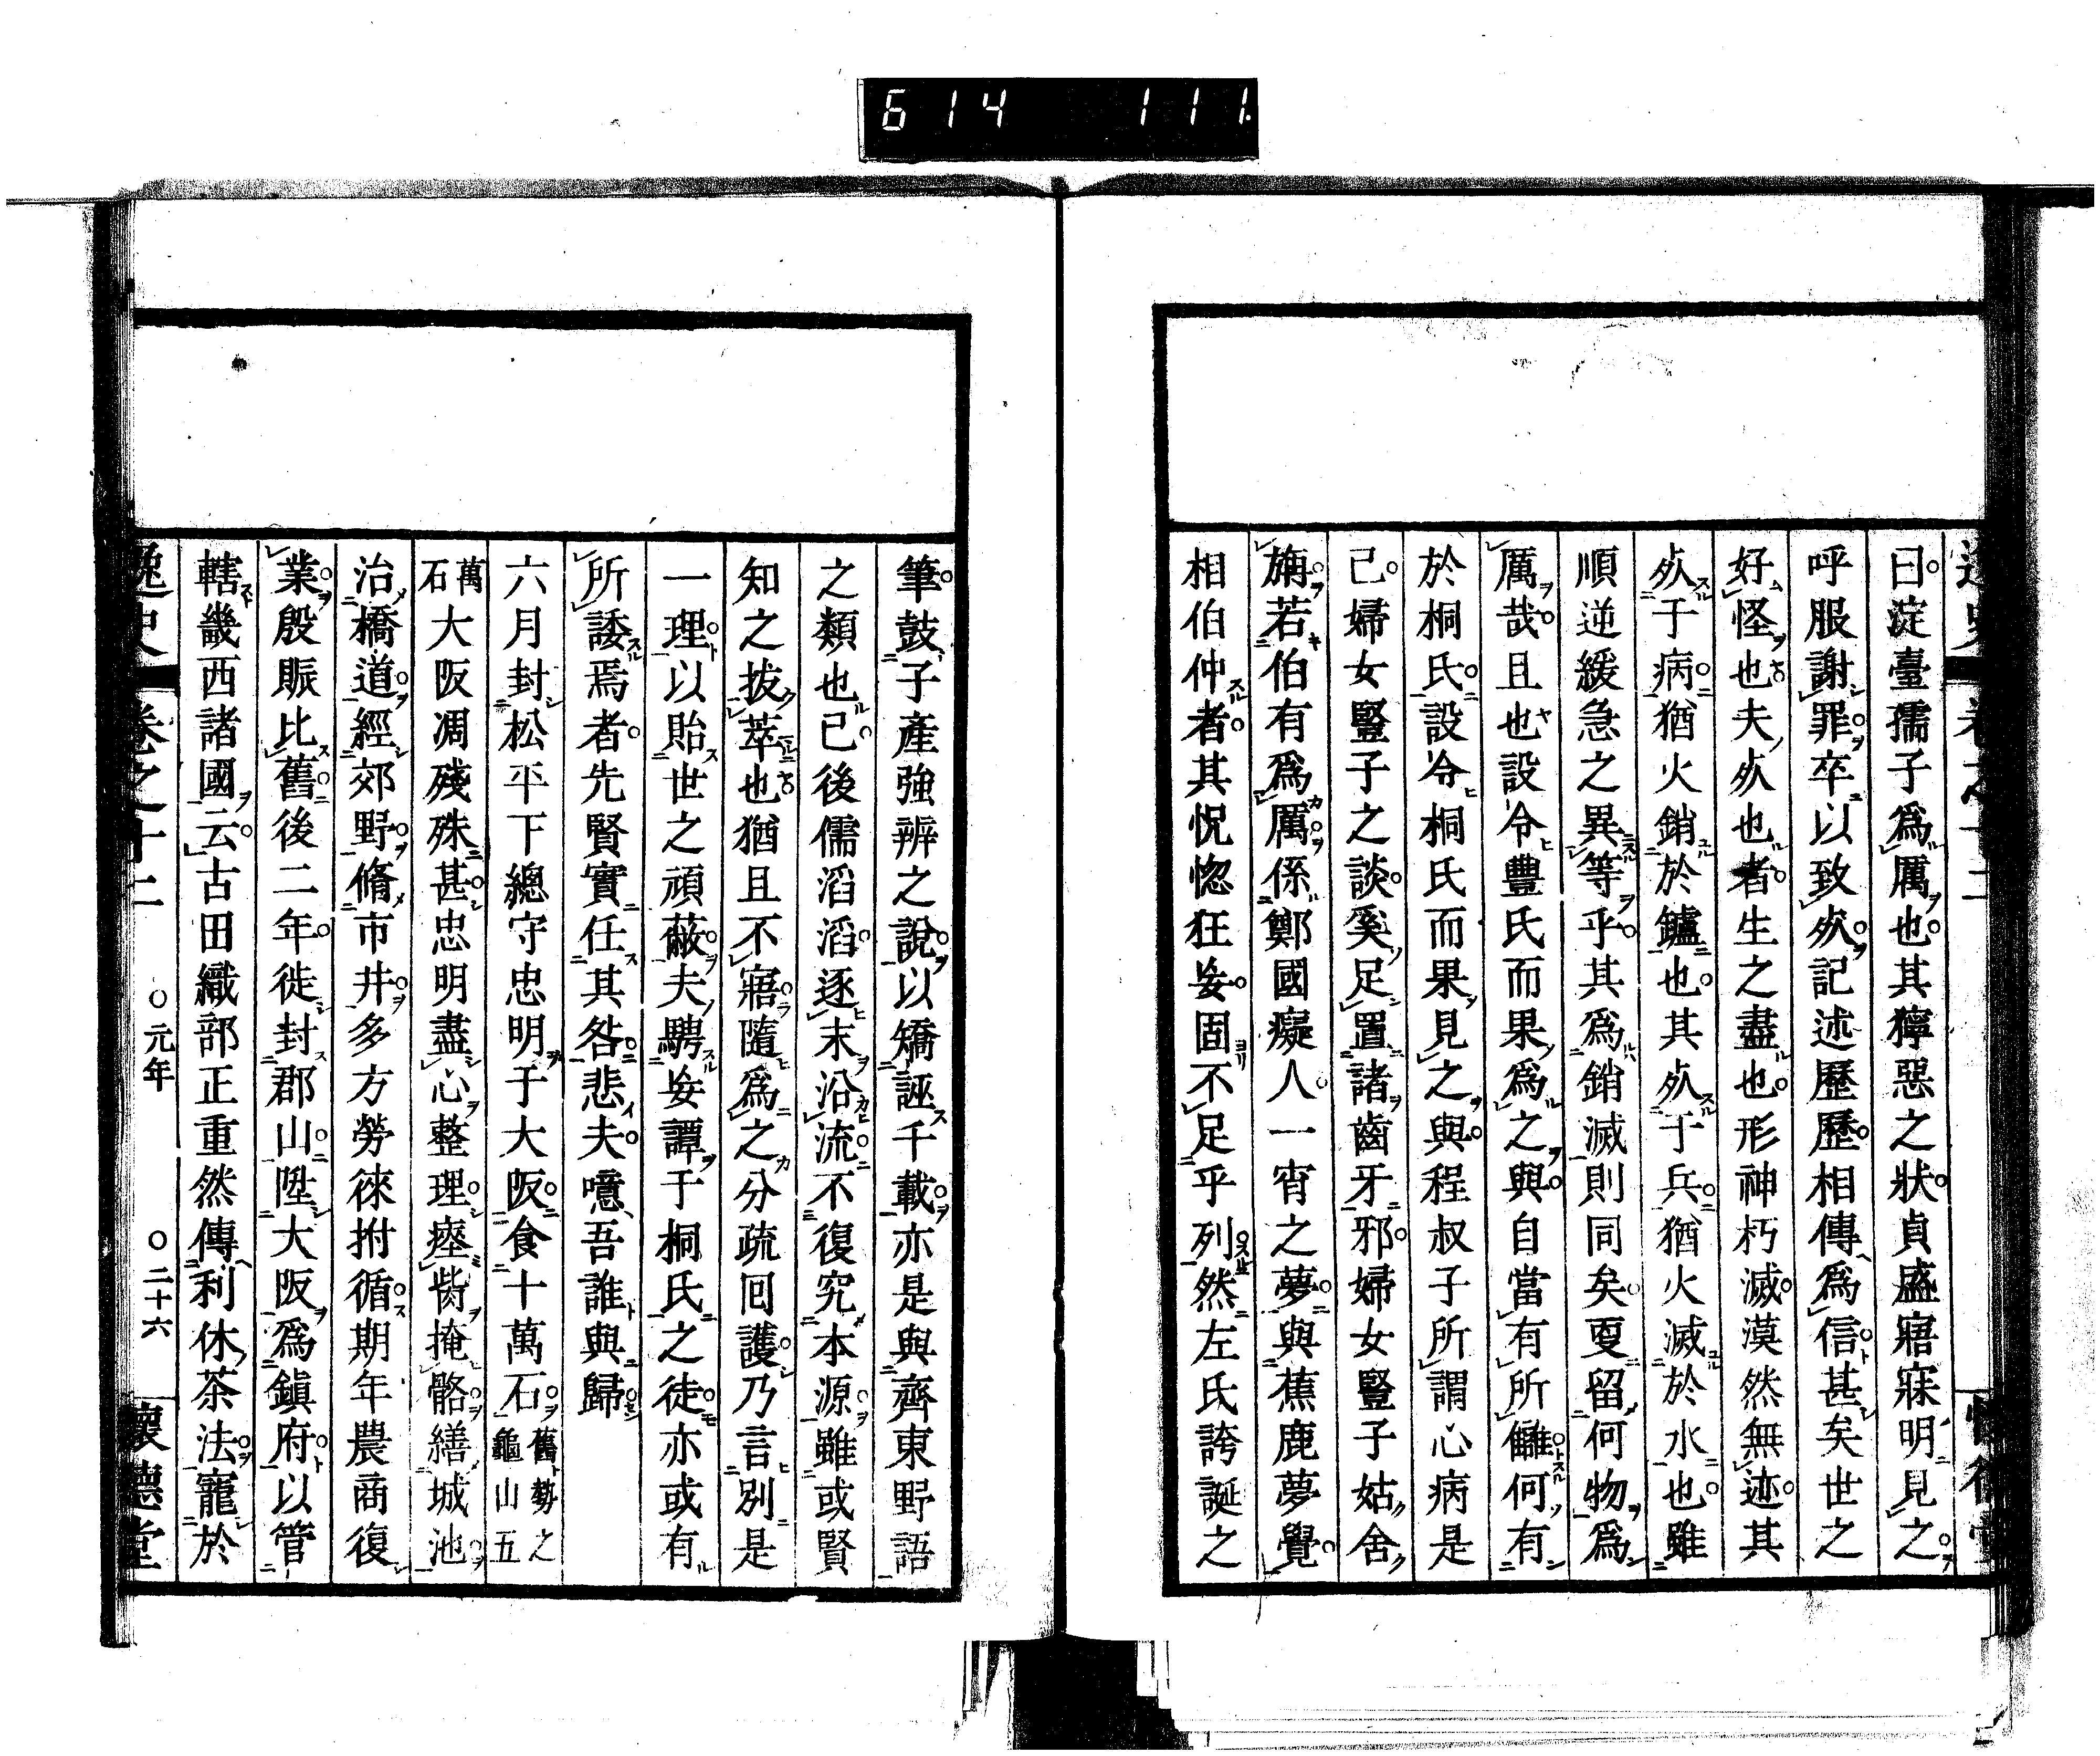 614 111
曰淀臺孺子爲厲也其獰惡之狀貞盛寤寐明見之
呼服謝罪卒以致㱙記述歷歷相傳爲信甚矣世之
好怪也夫㱙也者生之盡也形神朽滅漠然無迹其
㱙于病猶火銷於鑪也其㱙于兵猶火滅於水也雖
順逆緩急之異等乎其爲銷滅則同矣更留何物爲
厲哉且也設令豐氏而果爲之與自當有所讎何有
於桐氏設令桐氏而果見之與程叔子所謂心病是
已婦女豎子之談奚足置諸齒牙邪婦女豎子姑舍
旃若伯有爲厲係鄭國癡人一宵之夢與蕉鹿夢覺
相伯仲者其怳惚狂妄固不足乎列然左氏誇誕之
筆鼓子產強辨之說以矯誣千載亦是與齊東野語
之類也已後儒滔滔逐末沿流不復究本源雖或賢
知之拔萃也猶且不寤隨爲之分疏回護乃言別是
一理以貽世之頑蔽夫騁妄譚于桐氏之徒亦或有
所諉焉者先賢實任其咎悲夫噫吾誰與歸
六月封松平下總守忠明于大阪食十萬石舊勢之龜山五
萬石大阪凋殘殊甚忠明盡心整理瘞胔掩骼繕城池
治橋道經郊野脩市井多方勞徠拊循期年農商復
業殷賑比舊後二年徙封郡山陞大阪爲鎮府以管
轄畿西諸國云古田織部正重然傳利休茶法寵於
逸史 卷之十二 〇元年 〇二十六 懷德堂